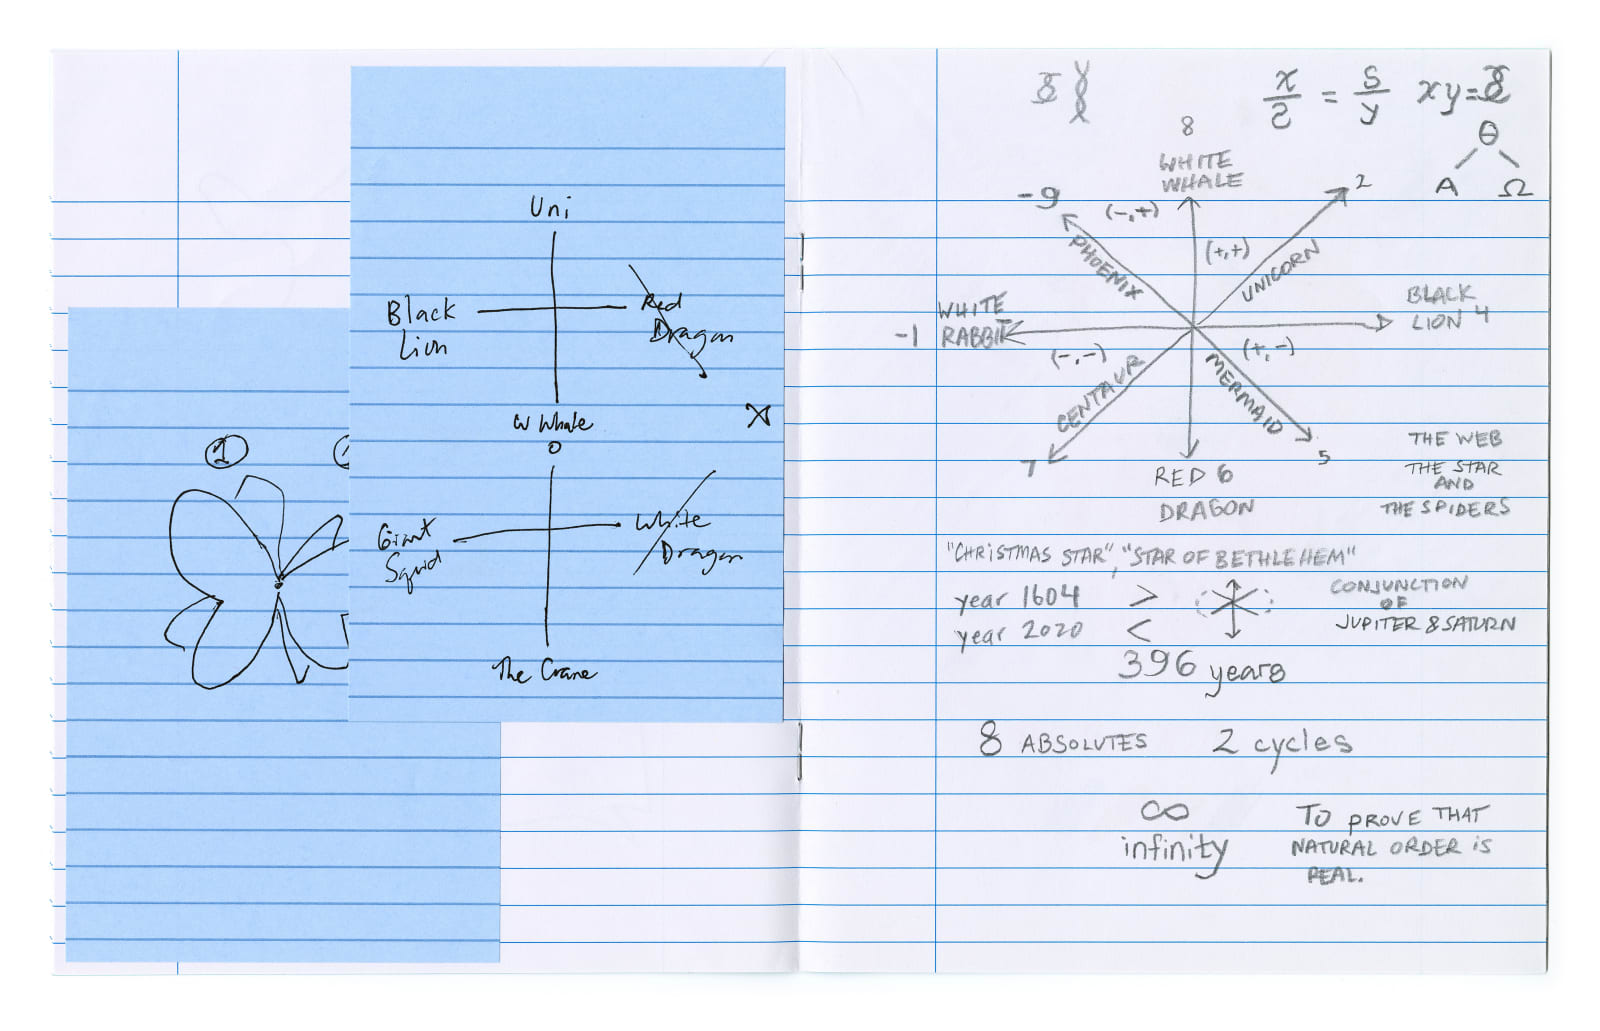 Uni
Black
Lion
Red
Dragon
W Whale
0
Giant
Squid
White
Dragon
The Crane
1
x/2 = 5/y xy=
8
WHITE
WHALE
θ
A Ω
-9
(-,+)
2
PHOENIX
(+,+)
UNICORN
-1
WHITE
RABBIT
BLACK
LION 4
(-,-)
(+,-)
CENTAUR
MERMAID
7
5
RED 6
DRAGON
THE WEB
THE STAR
AND
THE SPIDERS
"CHRISTMAS STAR", "STAR OF BETHLEHEM"
year 1604 >
year 2020 <
CONJUNCTION
OF
JUPITER & SATURN
396 years
8 ABSOLUTES 2 cycles
∞
infinity
TO PROVE THAT
NATURAL ORDER IS
REAL.